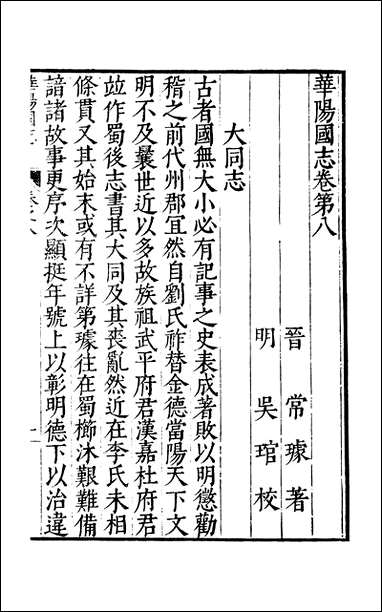 華陽國志卷第八
晉常璩著
明吳琯校
大同志
古者國無大小必有記事之史表成著敗以明懲勸
稽之前代州郡冝然自劉氏祚替金德當陽天下文
明不及曩世近以多故族祖武平府君漢嘉杜府君
竝作蜀後志書其大同及其喪亂然近在李氏未相
條貫又其始末或有不詳第璩往在蜀櫛沐艱難備
諳諸故事更序次顯挺年號上以彰明德下以治違